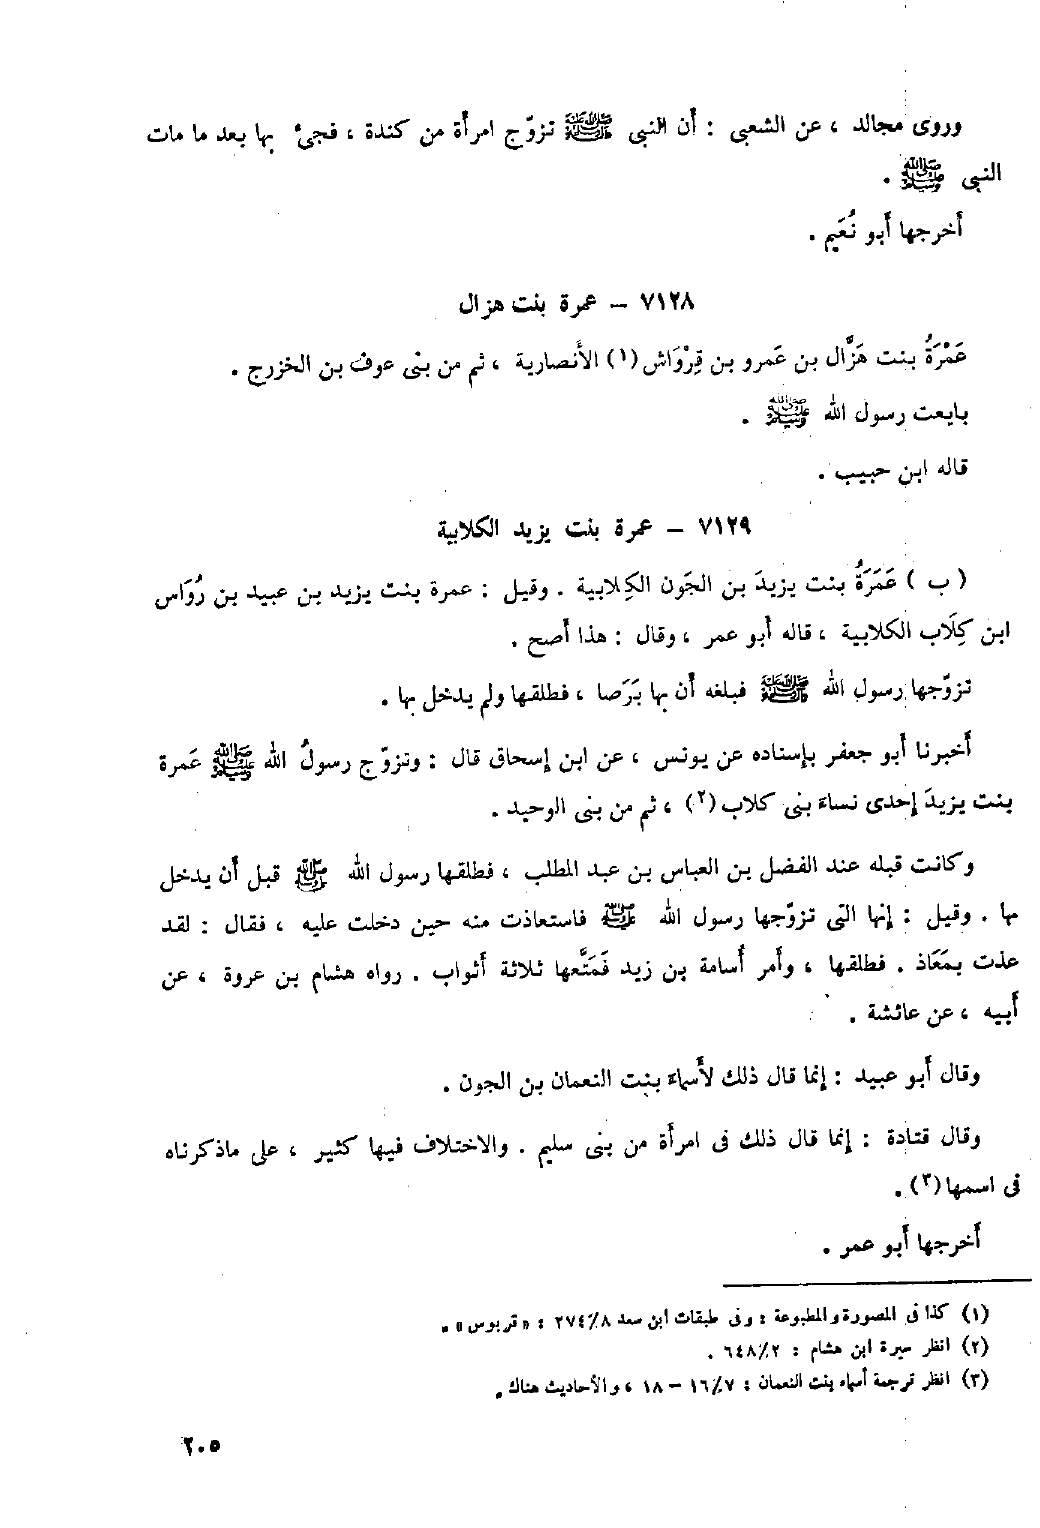 وروى مجالد ، عن الشعبى : أن النبى ﷺ تزوّج امرأة من كندة ، فجئ بها بعد ما مات
النبى ﷺ .
أخرجها أبو نُعَيم .
٧١٢٨ – عمرة بنت هزال
عَمْرَةُ بنت هَزَّال بن عَمرو بن قِرْوَاش (١) الأَنصارية ، ثم من بنى عوف بن الخزرج .
بايعت رسول الله ﷺ .
قاله ابن حبيب .
٧١٢٩ – عمرة بنت يزيد الكلابية
( ب ) عَمَرَةُ بنت يزيدَ بن الجَون الكِلابية . وقيل : عمرة بنت يزيد بن عبيد بن رُوَاس
ابن كِلَاب الكلابية ، قاله أبو عمر ، وقال : هذا أصح .
تزوّجها رسول الله ﷺ فبلغه أن بها بَرَصا ، فطلقها ولم يدخل بها .
أخبرنا أبو جعفر بإسناده عن يونس ، عن ابن إسحاق قال : وتزوّج رسولُ الله ﷺ عَمرة
بنت يزيدَ إحدى نساءَ بنى كلاب (٢) ، ثم من بنى الوحيد .
وكانت قبله عند الفضل بن العباس بن عبد المطلب ، فطلقها رسول الله ﷺ قبل أن يدخل
بها . وقيل : إنها التى تزوّجها رسول الله ﷺ فاستعاذت منه حين دخلت عليه ، فقال : لقد
عذت بمَعَاذ . فطلقها ، وأمر أُسامة بن زيد فَمَتَّعها ثلاثة أثواب . رواه هشام بن عروة ، عن
أبيه ، عن عائشة .
وقال أبو عبيد : إنما قال ذلك لأَسماءَ بنت النعمان بن الجون .
وقال قتادة : إنما قال ذلك فى امرأة من بنى سليم . والاختلاف فيها كثير ، على ماذكرناه
فى اسمها (٣) .
أخرجها أبو عمر .
(١) كذا فى المصورة والمطبوعة : وفى طبقات ابن سعد ٨/ ٢٧٤ : « قربوس » .
(٢) انظر سيرة ابن هشام : ٢/ ٦٤٨ .
(٣) انظر ترجمة أسماء بنت النعمان : ٧/ ١٦ – ١٨ ، والأحاديث هناك .
٢٠٥